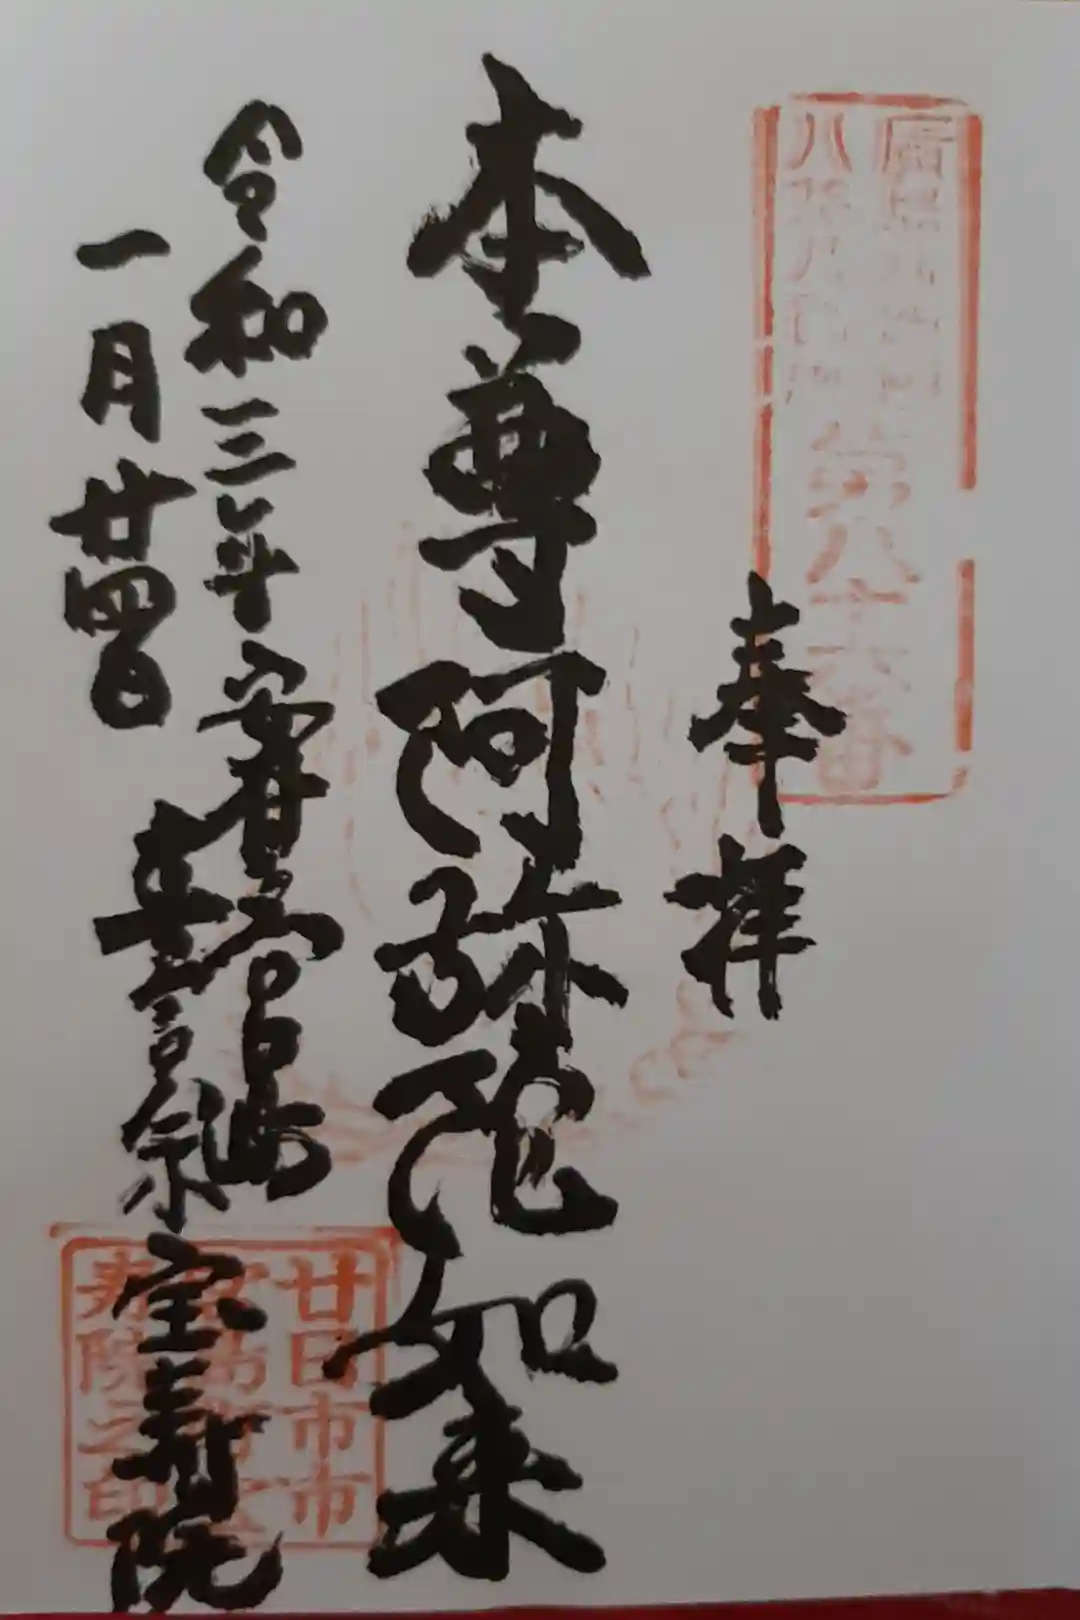 第八十六番
奉拝
本尊阿弥陀如来
令和三年 安芸宮島
一月廿四日
真言宗 宝寿院
廿日市市
宮島町宝
寿院之印